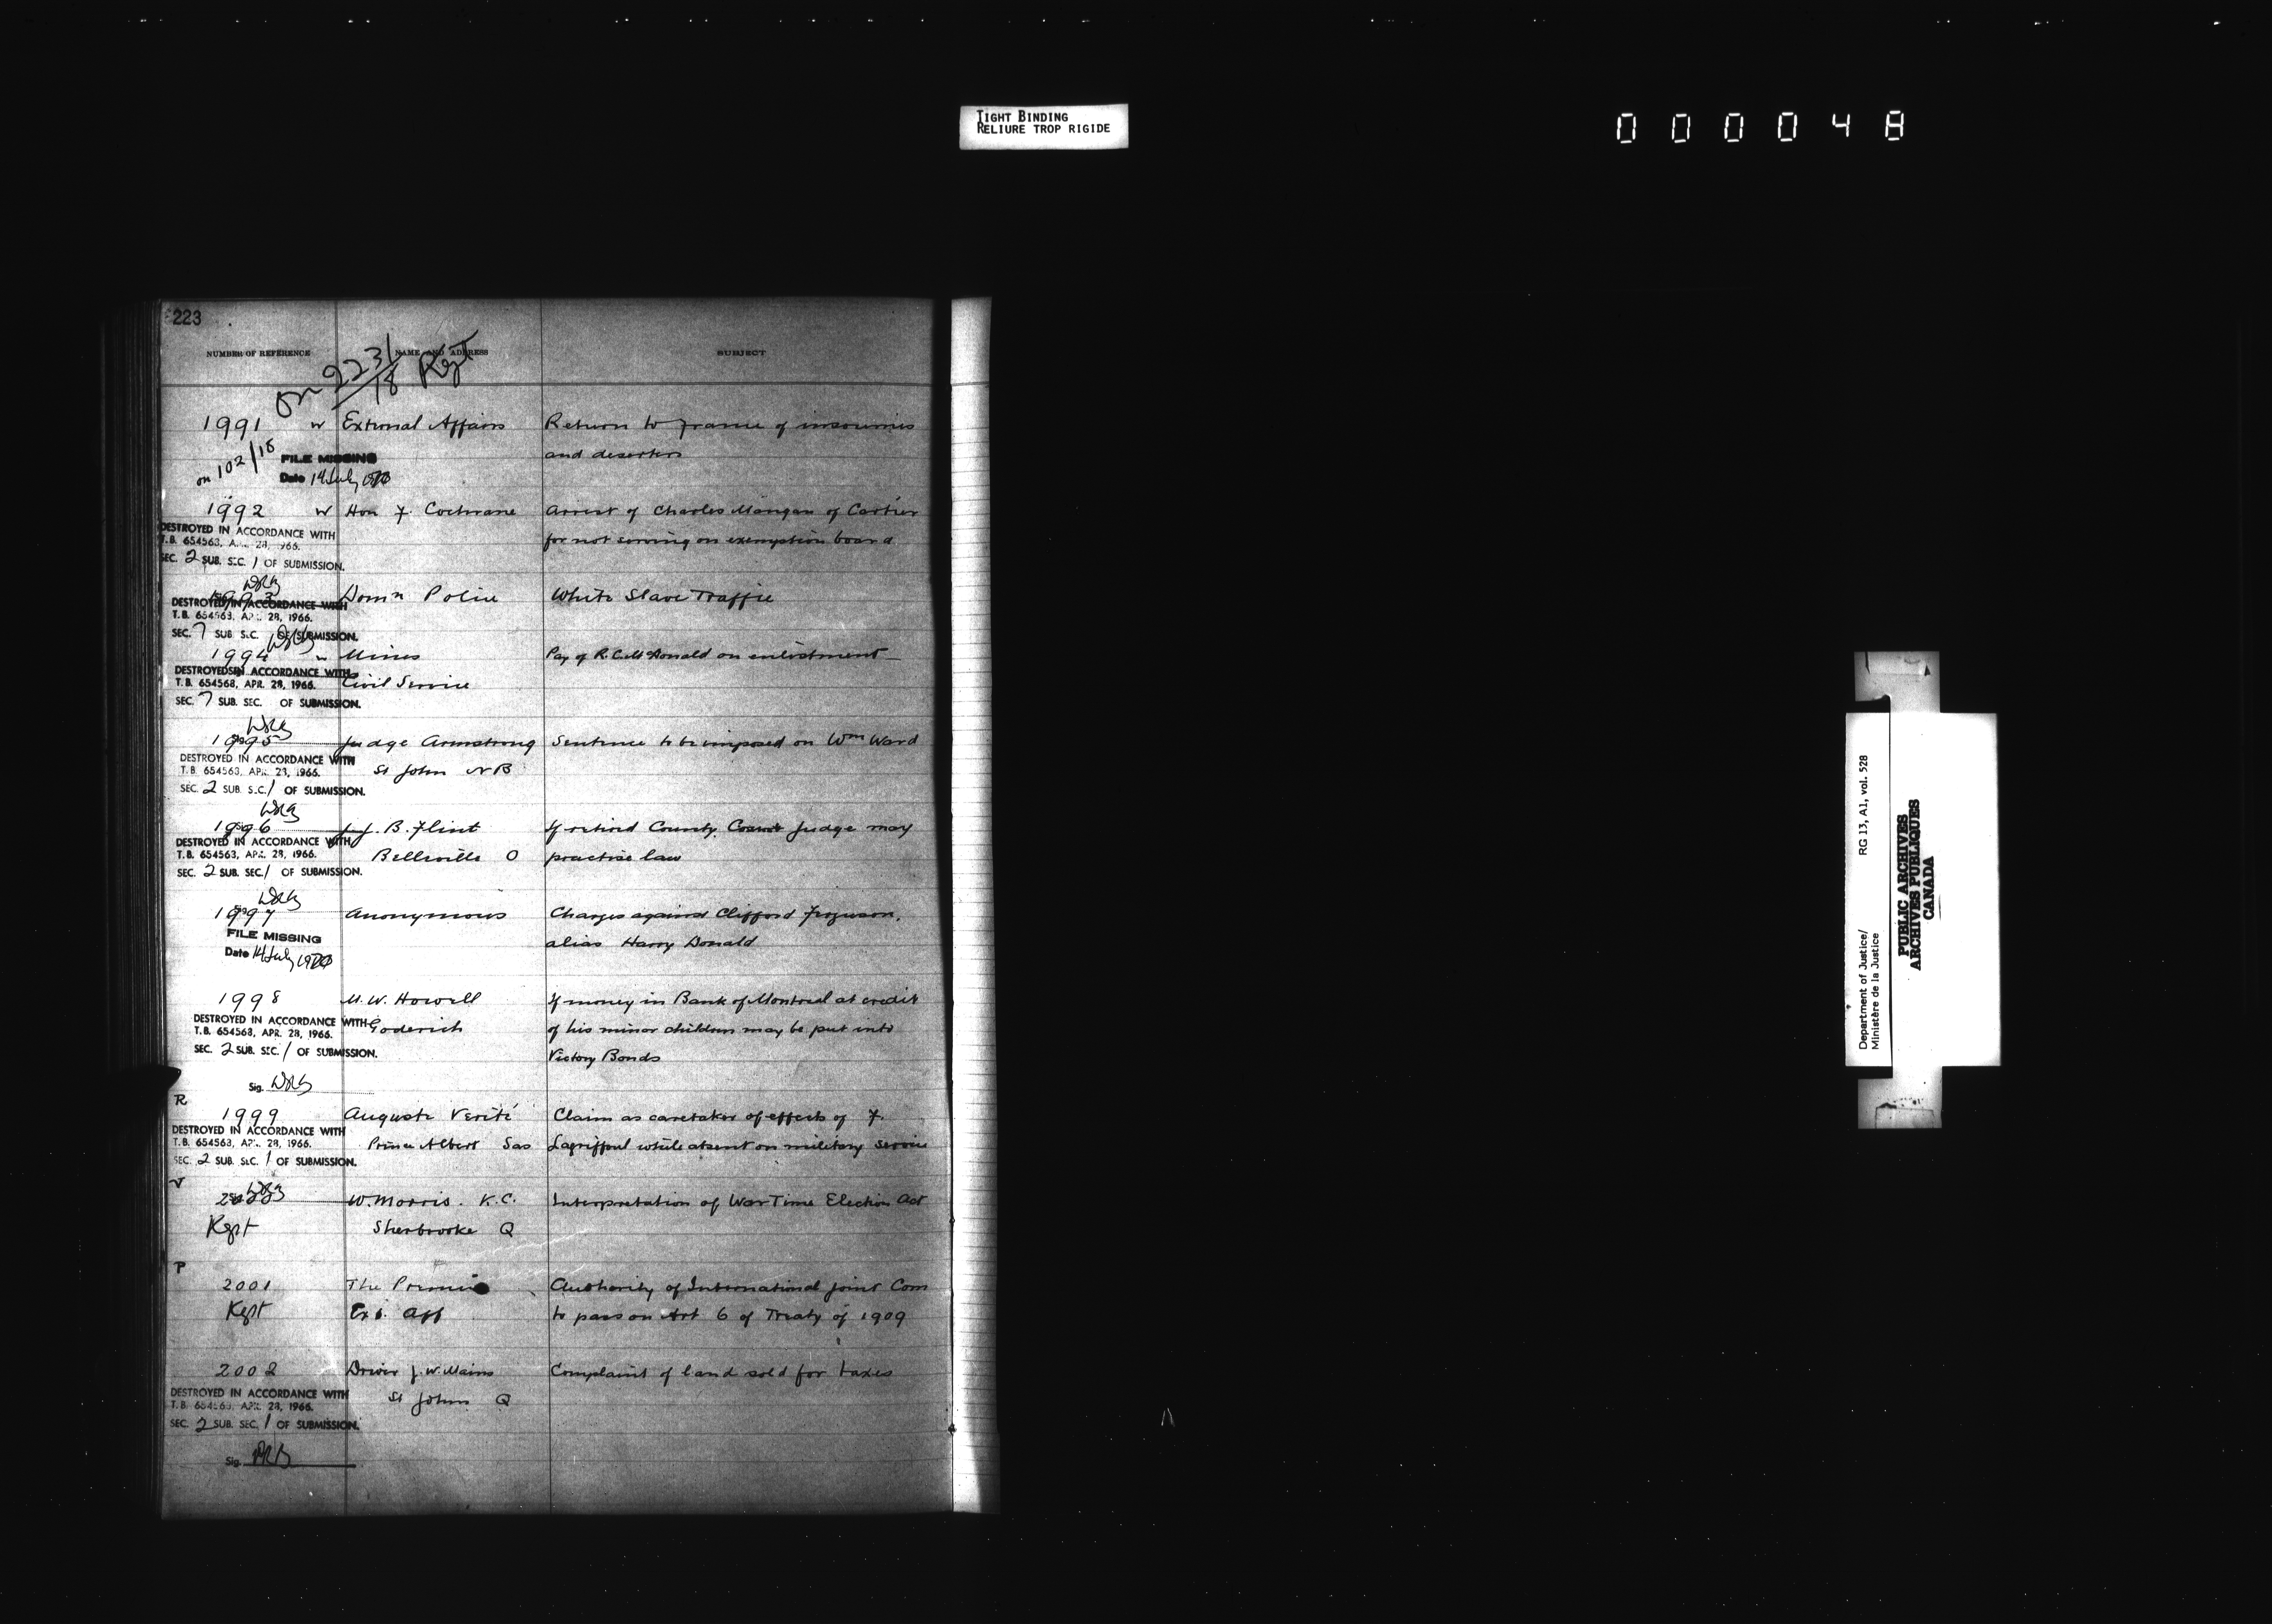 TIGHT BINDING
RELIURE TROP RIGIDE
000048
223
NUMBER OF REFERENCE NAME AND ADDRESS SUBJECT
on 2231/18 Kept
1991 w External Affairs Return to France of insoumis
and deserters
on 102/18 FILE MISSING
Date 14 July 1970
1992 w Hon F. Cochrane Arrest of Charles Mangan of Cartier
for not serving on exemption board
DESTROYED IN ACCORDANCE WITH
T.B. 654563, APR. 28, 1966.
SEC. 2 SUB. SEC. 1 OF SUBMISSION.
1993 Domn Police White Slave Traffic
DESTROYED IN ACCORDANCE WITH
T.B. 654563, APR. 28, 1966.
SEC. 7 SUB. SEC. OF SUBMISSION.
1994 w Mines Pay of R.C. McDonald on enlistment
Civil Service
DESTROYED IN ACCORDANCE WITH
T.B. 654563, APR. 28, 1966.
SEC. 7 SUB. SEC. OF SUBMISSION.
1995 Judge Armstrong Sentence to be imposed on Wm Ward
St John N B
DESTROYED IN ACCORDANCE WITH
T.B. 654563, APR. 28, 1966.
SEC. 2 SUB. SEC. 1 OF SUBMISSION.
1996 J.J. B. Flint If retired County Court Judge may
Belleville O practise law
DESTROYED IN ACCORDANCE WITH
T.B. 654563, APR. 28, 1966.
SEC. 2 SUB. SEC. 1 OF SUBMISSION.
1997 Anonymous Charges against Clifford Ferguson,
alias Harry Donald
FILE MISSING
Date 14 July 1970
1998 M. W. Howell If money in Bank of Montreal at credit
Goderich of his minor children may be put into
Victory Bonds
DESTROYED IN ACCORDANCE WITH
T.B. 654563, APR. 28, 1966.
SEC. 2 SUB. SEC. 1 OF SUBMISSION.
Sig.
R
1999 Auguste Verité Claim as caretaker of effects of F.
Prince Albert Sas Lagriffoul while absent on military service
DESTROYED IN ACCORDANCE WITH
T.B. 654563, APR. 28, 1966.
SEC. 2 SUB. SEC. 1 OF SUBMISSION.
V
2000 W. Morris. K.C. Interpretation of War Time Election Act
Kept Sherbrooke Q
P
2001 The Premier Authority of International Joint Com
Kept Ex. Aff to pass on Art 6 of Treaty of 1909
2002 Driver J. W. Mains Complaint of land sold for taxes
St Johns Q
DESTROYED IN ACCORDANCE WITH
T.B. 654563, APR. 28, 1966.
SEC. 2 SUB. SEC. 1 OF SUBMISSION.
Sig.
Department of Justice/ RG 13, A1, vol. 528
Ministère de la Justice
PUBLIC ARCHIVES
ARCHIVES PUBLIQUES
CANADA